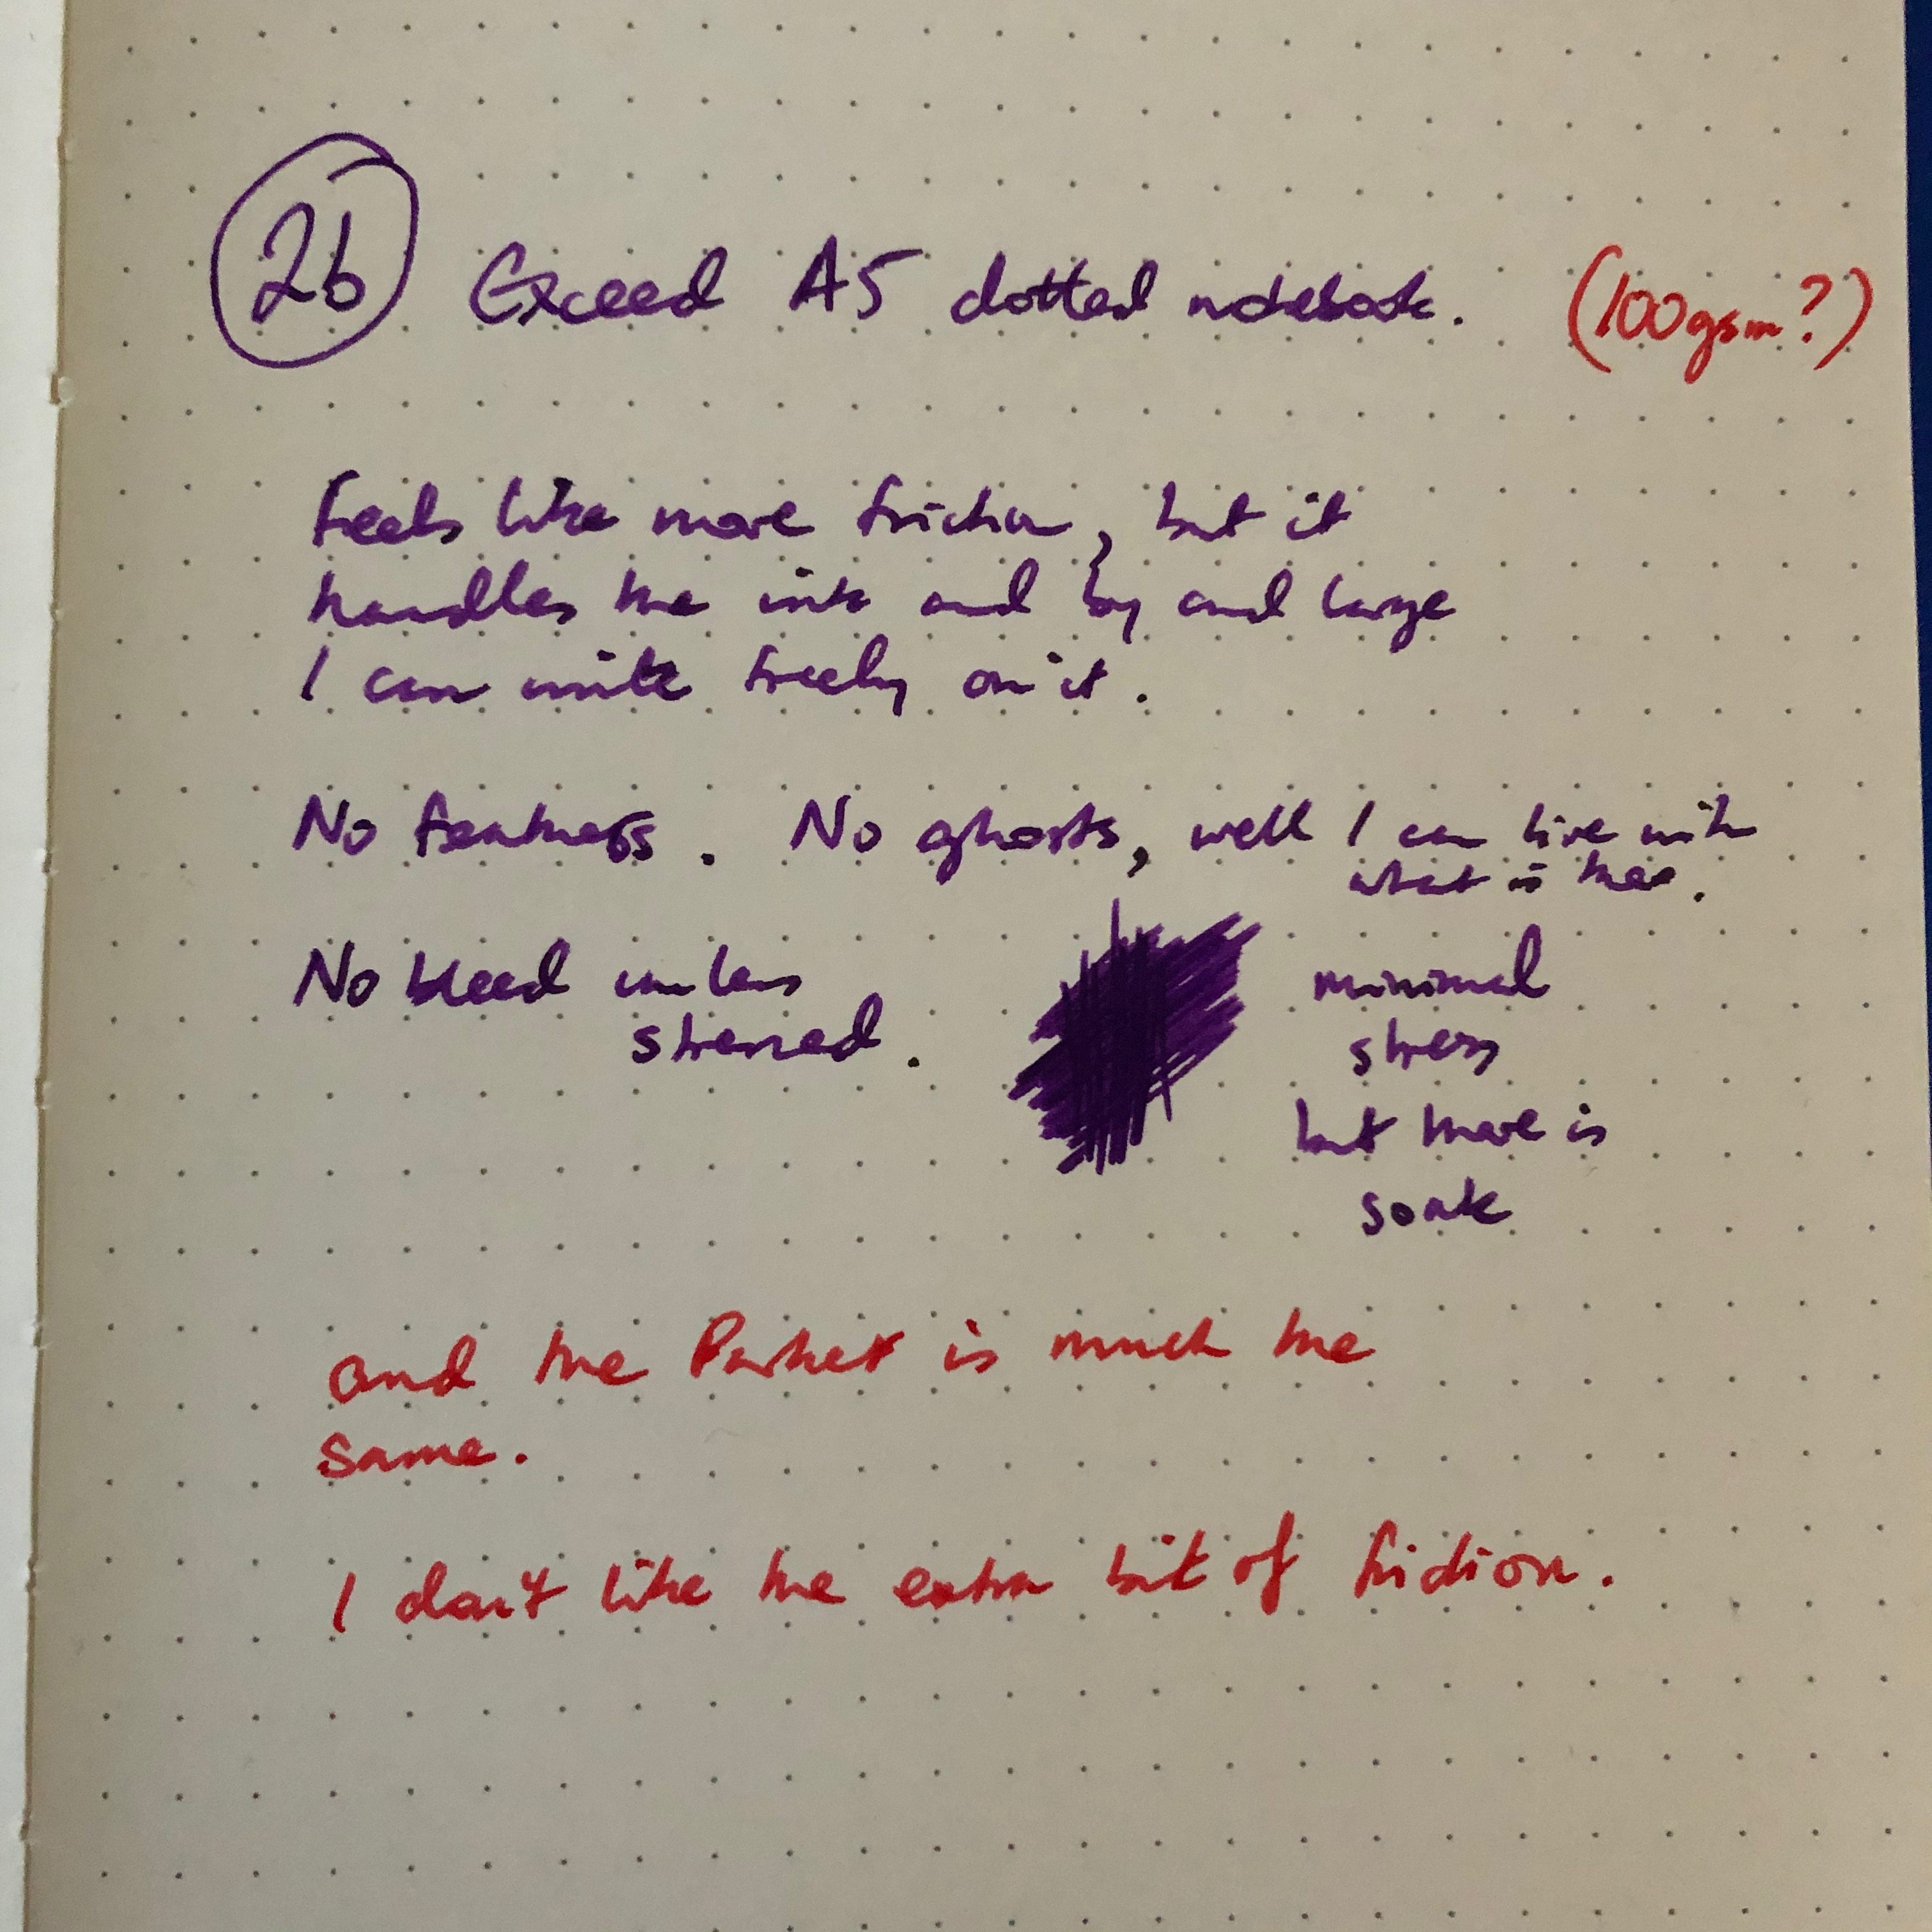 26 Exceed A5 dotted notebook. (100gsm?)
Feels like more friction, but it
handles the ink and by and large
I can write freely on it.
No feathers. No ghosts, well I can live with
what is there.
No bleed unless
stressed.
minimal
stress
but there is
soak
and the Parker is much the
same.
I don't like the extra bit of friction.